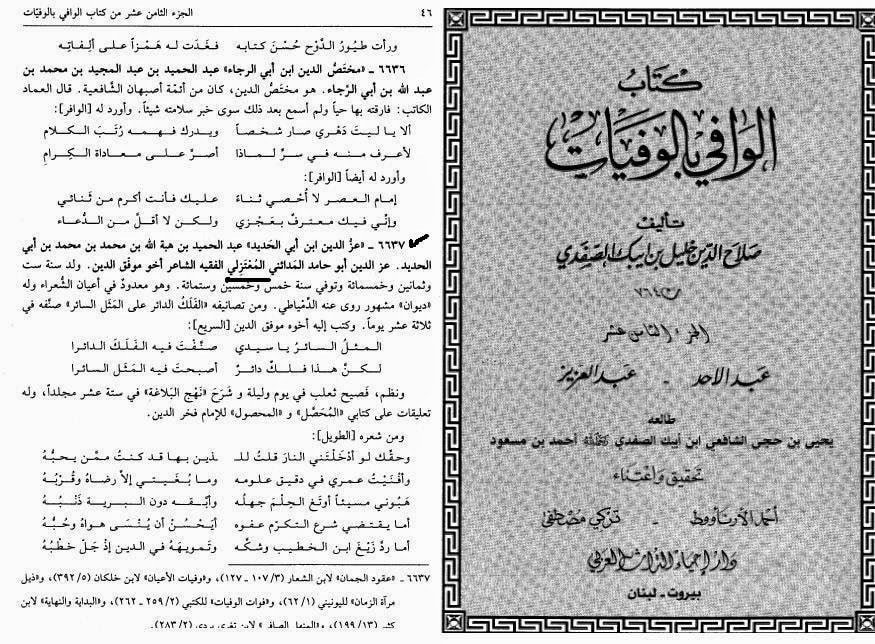 ٤٦
الجزء الثامن عشر من كتاب الوافي بالوفيّات
ورأت طيُورُ الدَّوْح حُسْنَ كتابه فغَدَت له هَمْزاً على ألِفاتِه
٦٦٣٦ ـ «مختَصُّ الدين ابن أبي الرجاء» عبد الحميد بن عبد المجيد بن محمد بن
عبد الله بن أبي الرَّجاء. هو مختَصُّ الدين، كان من أئمّة أصبهان الشَّافعية. قال العماد
الكاتب: فارقته بها حياً ولم أسمع بعد ذلك سوى خبر سلامته شيئاً. وأورد له [الوافر]:
ألا يا ليتَ دَهْري صار شخصاً ويدرك فهمـه رُتَبَ الكـلام
لأعرف منه في سرٍّ لماذا أصرَّ على معـاداة الكِرامِ
وأورد له أيضاً [الوافر]:
إمام العصر لا أُحْصي ثناءً عليك فأنت أكرم من ثَنائي
وإنّي فيك معترفٌ بعَجْزي ولكن لا أقلَّ من الدُّعاء
٦٦٣٧ ـ «عزُّ الدين ابن أبي الحَديد» عبد الحميد بن هبة الله بن محمد بن محمد بن أبي
الحديد. عز الدين أبو حامد المَدائني المُعْتَزلي الفقيه الشاعر أخو موفّق الدين. ولد سنة ست
وثمانين وخمسمائة وتوفي سنة خمسٍ وخمسين وستمائة. وهو معدودٌ في أعيان الشُّعراء وله
«ديوان» مشهور روى عنه الدِّمياطي. ومن تصانيفه «الفَلَكُ الدائر على المَثَل السائر» صنَّفه في
ثلاثة عشر يوماً. وكتب إليه أخوه موفق الدين [السريع]:
المثلُ السائرُ يا سيدي صنَّفْتَ فيه الفَلَكَ الدائرا
لكـنَّ هـذا فـلـكٌ دائرٌ أصبحتَ فيه المَثَلَ السائرا
ونظم، فَصيح ثعلب في يوم وليلة و شَرَحَ «نَهْج البَلاغة» في ستة عشر مجلداً، وله
تعليقات على كتابي «المُحَصَّل» و «المحصول» للإمام فخر الدين.
ومن شعره [الطويل]:
وحقّك لو أدْخَلْتَني النارَ قلتُ للـ ـذين بها قد كنتُ ممَّن يحبُّهُ
وأفْنَيْتُ عمري في دقيق علومه وما بُغْيتي إلاَّ رضاهُ وقُرْبُهُ
هَبُوني مسيئاً أوتَغ الحِلْمَ جهلُه وأبْقـه دون البـرية ذَنْبُـهُ
أما يقتضي شرع التكرّم عفوه أيَحْسُنُ أن يُنْسَى هواهُ وحُبُّهُ
أما ردَّ زَيْغَ ابن الخطيب وشكَّه وتَمويهَهُ في الدين إذ جَلَّ خَطْبُهُ
٦٦٣٧ ـ «عقود الجمان» لابن الشعار (٣/ ١٠٧ ـ ١٢٧)، و«وفيات الأعيان» لابن خلكان (٥/ ٣٩٢)، و«ذيل
مرآة الزمان» لليونيني (١/ ٦٢)، و«فوات الوفيات» للكتبي (٢/ ٢٥٩ ـ ٢٦٢)، و«البداية والنهاية» لابن
كثير (١٣/ ١٩٩)، و«المنهل الصافي» لابن تغري بردي (٢/ ٢٨٣).
كتاب
الوافي بالوفيات
تأليف
صلاح الدين خليل بن ايبك الصفدي
ت ٧٦٤ هـ
الجزء الثامن عشر
عبد الأحد - عبد العزيز
طالعه
يحيى بن حجي الشافعي ابن أيبك الصفدي أحمد بن مسعود
تحقيق واعتناء
أحمد الأرناؤوط - تزكي مصطفى
دار إحياء التراث العربي
بيروت - لبنان